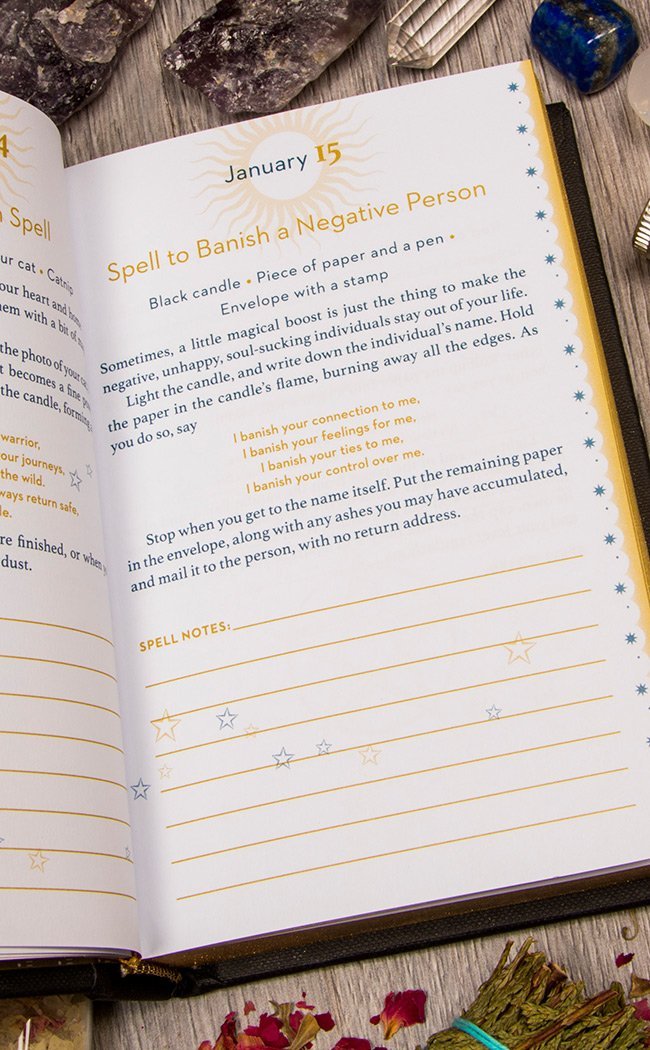 4
n Spell
ur cat • Catnip
our heart and hom
hem with a bit of
the photo of your ca
it becomes a fine
the candle, forming
warrior,
our journeys,
the wild.
ways return safe,
le.
re finished, or when
dust.
January 15
Spell to Banish a Negative Person
Black candle • Piece of paper and a pen •
Envelope with a stamp
Sometimes, a little magical boost is just the thing to make the
negative, unhappy, soul-sucking individuals stay out of your life.
Light the candle, and write down the individual's name. Hold
the paper in the candle's flame, burning away all the edges. As
you do so, say
I banish your connection to me,
I banish your feelings for me,
I banish your ties to me,
I banish your control over me.
Stop when you get to the name itself. Put the remaining paper
in the envelope, along with any ashes you may have accumulated,
and mail it to the person, with no return address.
SPELL NOTES: